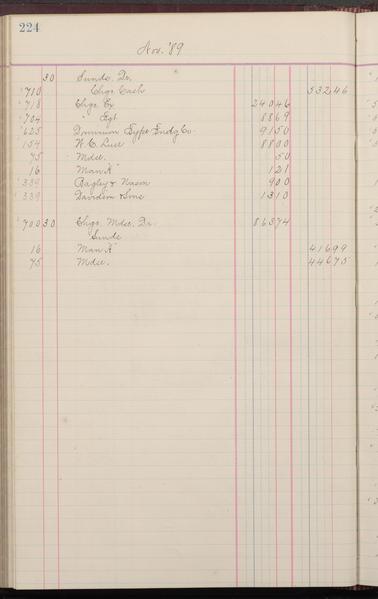 224
Nov. '89
30 Sunds. Dr.
'710 Chgs. Cash 532 46
'718 Chgs. Ex 240 46
'704 " Frt. 88 69
'625 Dominion Type Fndg Co 91 50
154 W. C. 88 00
75 Mdse. 50
16 Man'f 1 21
'339 Bagley & Nason 9 00
'339 Davidson & Sons 13 10
'700 30 Chgs. Mdse. Dr. 863 74
Sunds
16 Man'f 416 99
75 Mdse. 446 75